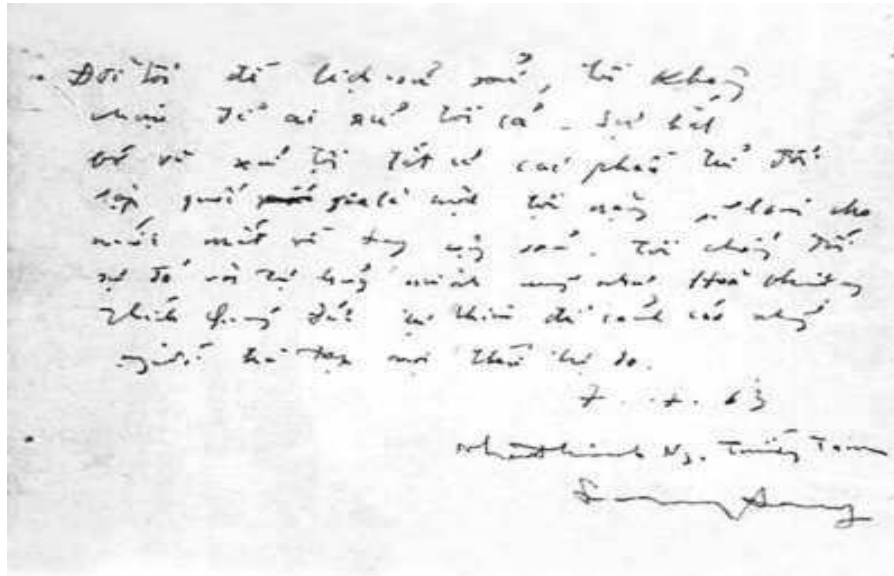 Đời tôi để lịch sử xử, tôi không
chịu để ai xử tôi cả. Sự bắt
bớ và xử tội tất cả các phần tử đối
lập quốc gia là một tội nặng, sẽ làm cho
nước mất về tay cộng sản. Tôi chống đối
sự đó và tự huỷ mình cũng như Hoà thượng
Thích Quảng Đức tự thiêu để cảnh cáo những
người chà đạp mọi thứ tự do.
7 - 7 - 63
Nhất Linh Ng. Tường Tam